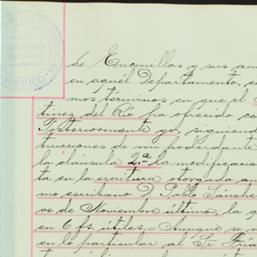 de Encinillas y sus an
en aquél Departamento, e
mos términos en que el S
tinez del Río ha ofrecido ce
Posteriormente yo, siguiend
trucciones de mi poderdante
la cláusula 2ª la modificacio
ta en la escritura otorgada an
mo escribano D. Pablo Sánche
ve de Noviembre último, la q
en 6 fs. útiles.- Aunque se m
en lo particular al Sr. Fria